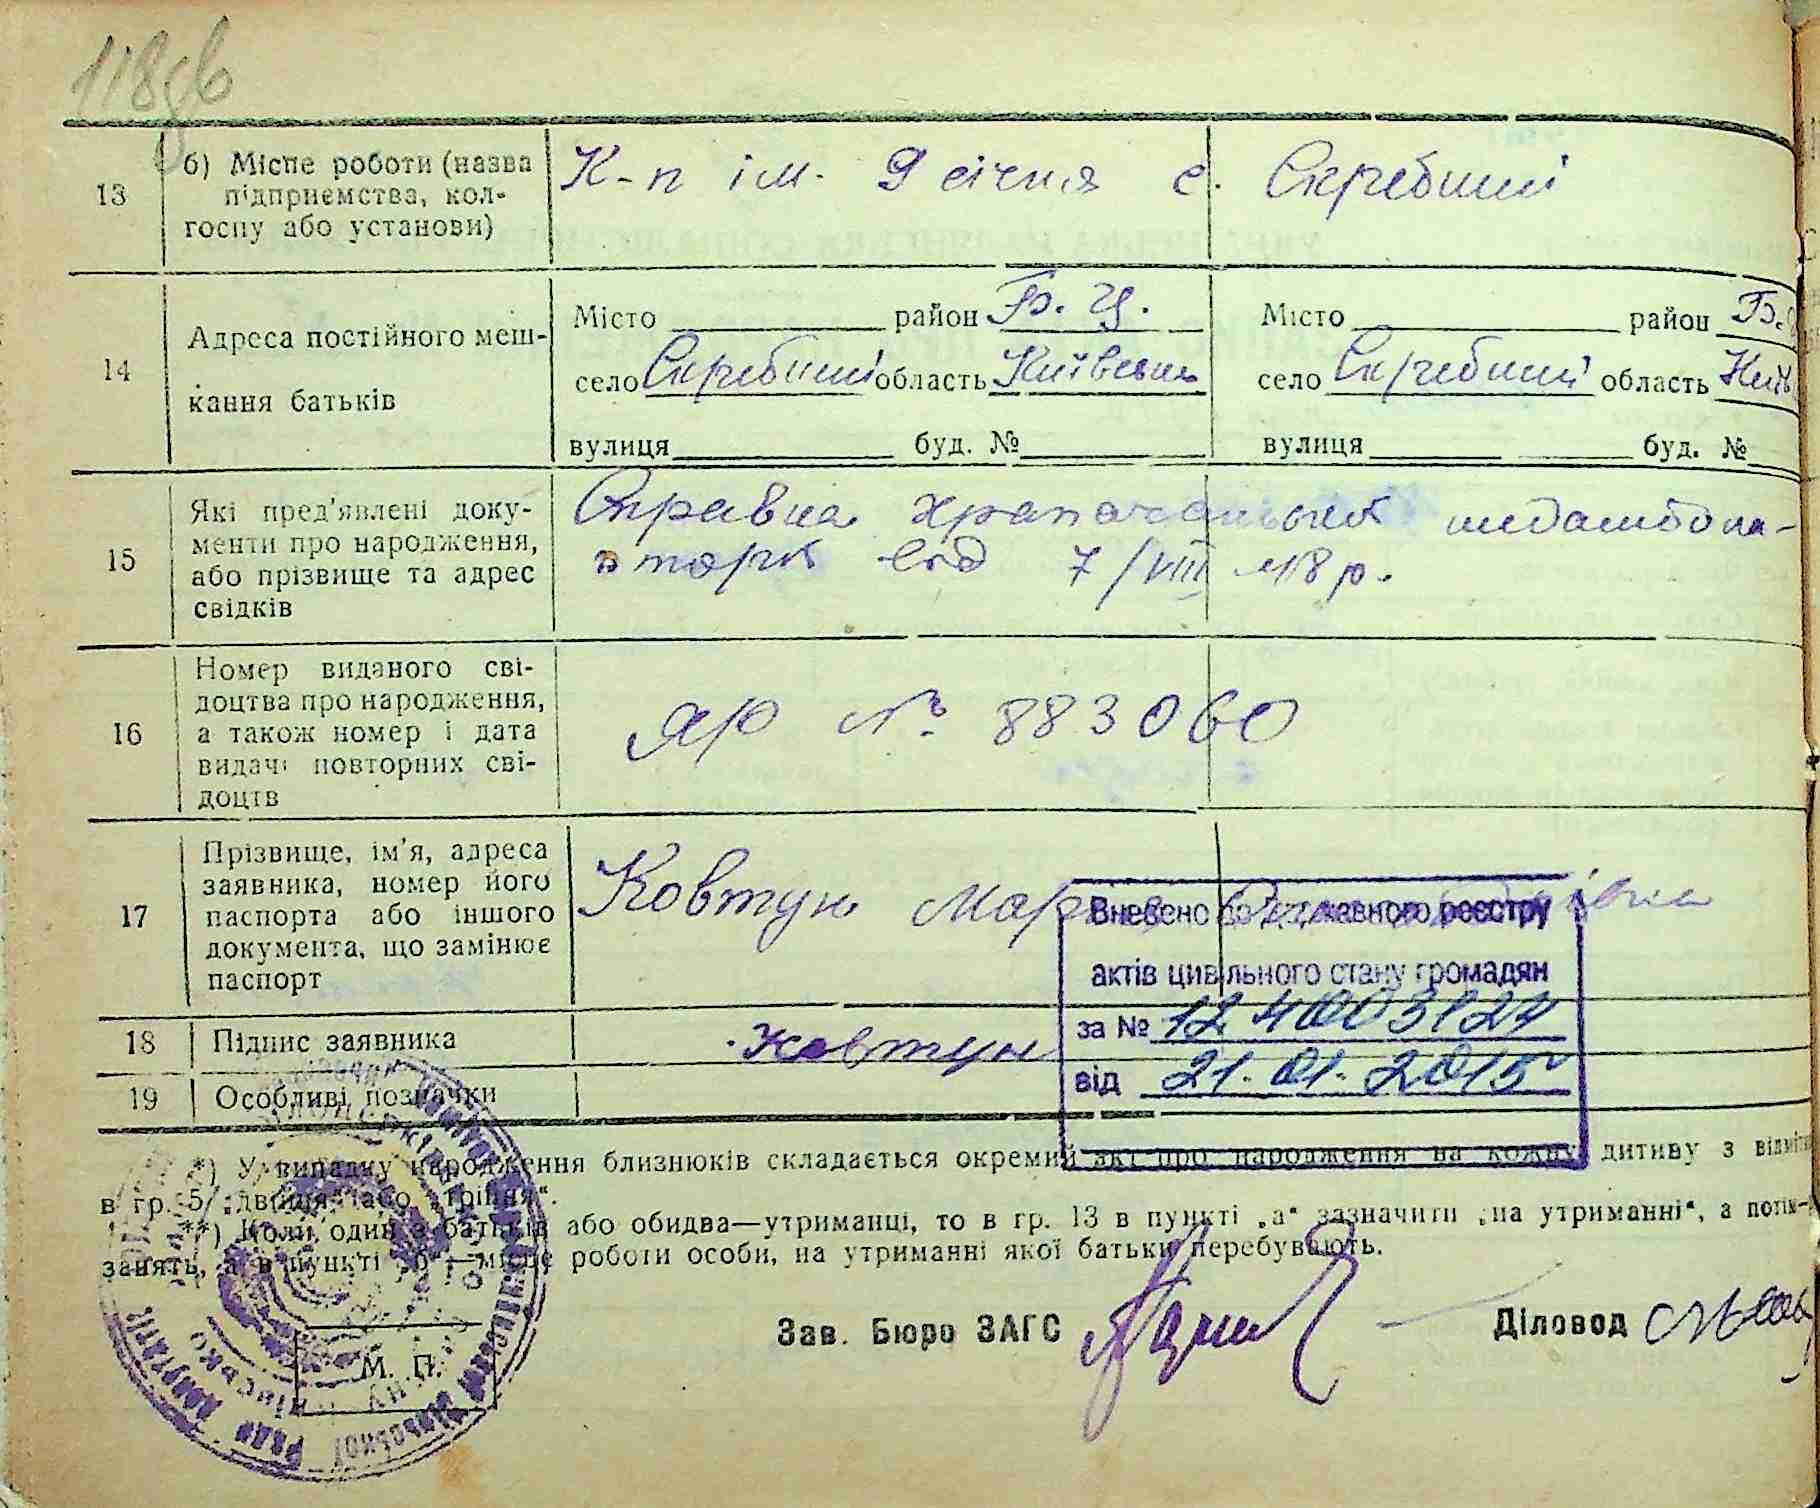 118зв
13 б) Місце роботи (назва підприємства, кол-
госпу або установи)
К-п ім. 9 січня с. Скребиші
14 Адреса постійного меш-
кання батьків
Місто район Б. Ц.
село Скребиші область Київська
вулиця буд. №
Місто район Б.
село Скребиші область Київ
вулиця буд. №
15 Які пред'явлені доку-
менти про народження,
або прізвище та адрес
свідків
Справка
від 7/VIII 48 р.
16 Номер виданого сві-
доцтва про народження,
а також номер і дата
видачі повторних сві-
доцтв
ЯЮ № 883060
17 Прізвище, ім'я, адреса
заявника, номер його
паспорта або іншого
документа, що замінює
паспорт
Ковтун
Внесено до Державного реєстру
актів цивільного стану громадян
за № 12 4003124
від 21.01.2015
18 Підпис заявника Ковтун
19 Особливі позначки
*) У випадку народження близнюків складається окремий акт про народження на кожну дитину з відміт
в гр. 5 „двійня“ або „трійня“.
**) Коли один з батьків або обидва—утриманці, то в гр. 13 в пункті „а“ зазначити „на утриманні“, а потім
занять, а в пункті „б“—місце роботи особи, на утриманні якої батьки перебувають.
Зав. Бюро ЗАГС
Діловод
М. П.